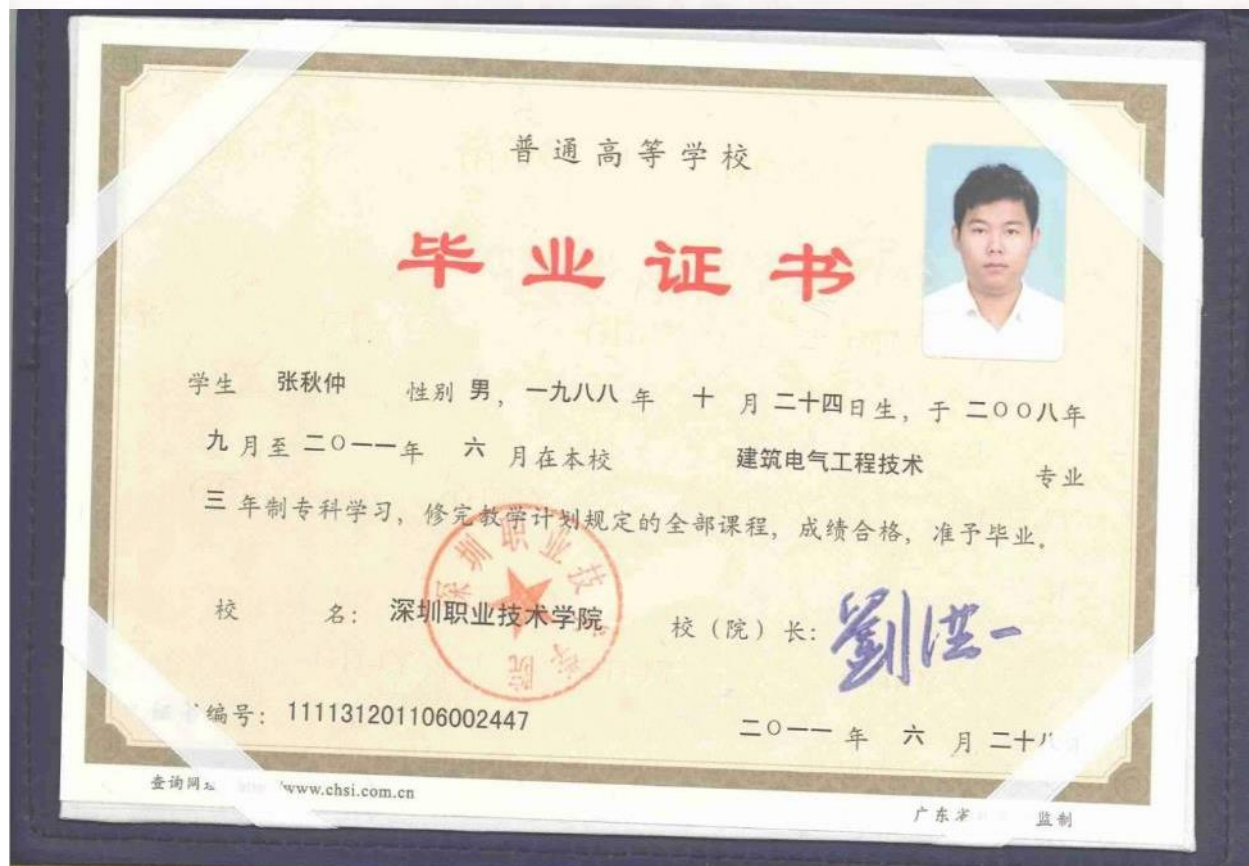 普通高等学校
毕业证书
学生 张秋仲 性别 男，一九八八 年 十 月 二十四日生，于 二〇〇八年
九 月至 二〇一一年 六 月在本校 建筑电气工程技术 专业
三 年制专科学习，修完教学计划规定的全部课程，成绩合格，准予毕业。
校 名：深圳职业技术学院 校（院）长：劉洪一
深圳职业技术学院
编号：111131201106002447 二〇一一 年 六 月 二十八
查询网 www.chsi.com.cn
广东 监制